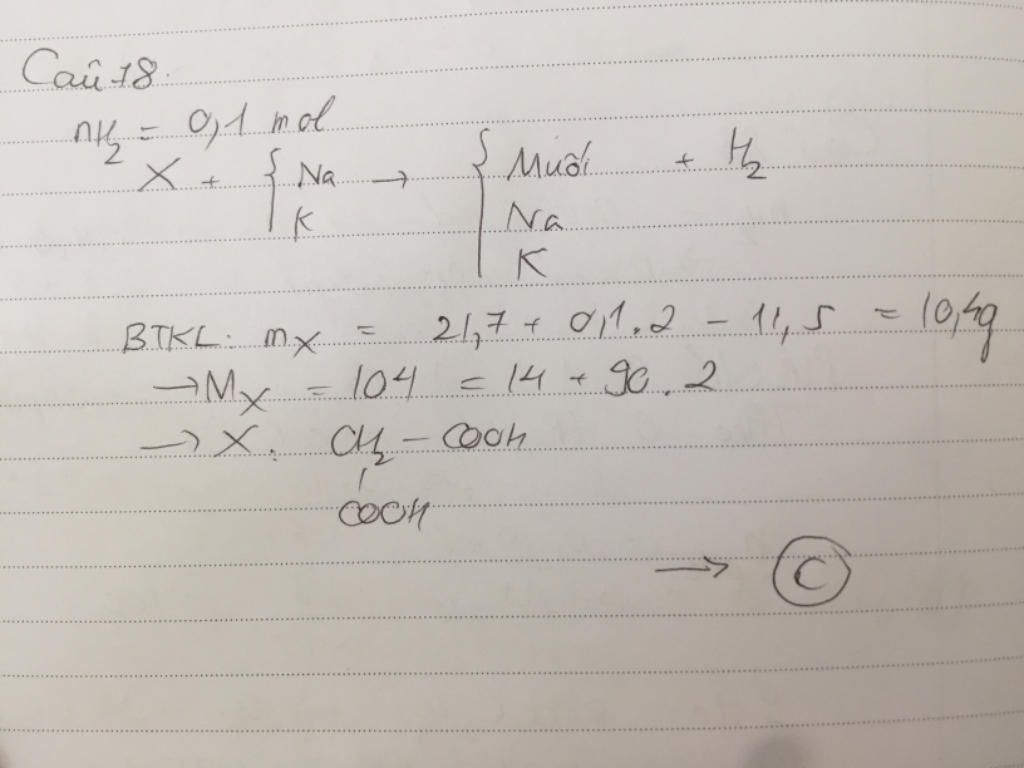 Câu 18.
nH2 = 0,1 mol
X + { Na → { Muối + H2
K Na
K
BTKL: mX = 21,7 + 0,1.2 - 11,5 = 10,4g
→ MX = 104 = 14 + 90.2
→ X: CH2 - COOH
COOH
→ C